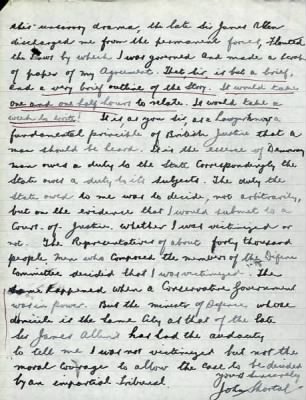 this unsavory drama, the late Sir James Allen
discharged me from the permanent force, Flouted
the laws by which I was governed and made a scrap
of paper of my Agreement. That Sir, is but a brief,
and a very brief outline of the Story. It would take
one and one half hours to relate. It would take a
week to write! It is, as you Sir, as a lawyer know a
fundamental principle of British Justice that a
man should be heard. It is the essence of Democracy
man owes a duty to the State. Correspondingly the
State owes a duty to its subjects. The duty the
State owed to me was to decide, not arbitrarily,
but on the evidence that I would submit to a
Court of Justice, whether I was victimized or
not. The Representatives of about forty thousand
people, men who composed the members of the Defence
Committee decided that I was victimized. The
same happened when a Conservative Government
was in power. But the minister of Defence whose
domicile is the same City as that of the late
Sir James Allen has had the audacity
to tell me I was not victimized but not the
moral courage to allow the case to be decided
by an impartial tribunal.
yours sincerely
John Shortal